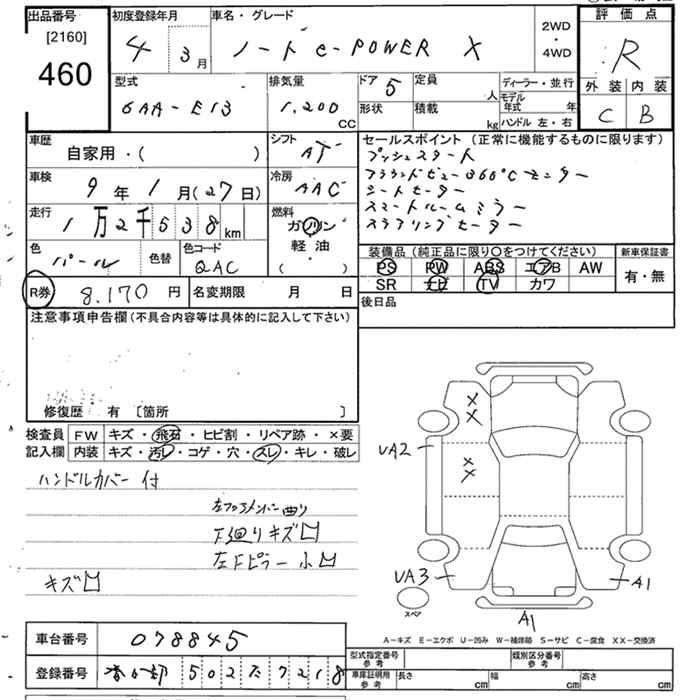 出品番号 初度登録年月 車名・グレード 2WD・4WD 評価点
[2160]
460
4 3月 ノート e-POWER X R
型式 排気量 ドア 5 定員 人 ディーラー・並行 外装 内装
6AA-E13 1,200 CC 形状 積載 kg モデル年式 年 C B
ハンドル 左・右
車歴 シフト セールスポイント (正常に機能するものに限ります)
自家用・( ) AT プッシュスタート
アラウンドビュー360℃モニター
車検 9年1月(27日) 冷房 AAC シートヒーター
スマートルームミラー
走行 1万2千538km 燃料 ステアリングヒーター
ガソリン
軽油
( )
色 パール 色替 色コード QAC 装備品 (純正品に限り○をつけてください) 新車保証書
PS PW ABS エアB AW 有・無
SR ナビ TV カワ
R券 8,170円 名変期限 月 日
後日品
注意事項申告欄(不具合内容等は具体的に記入して下さい)
修復歴 有 〔箇所 〕
検査員 FW キズ・飛石・ヒビ割・リペア跡・×要
記入欄 内装 キズ・汚レ・コゲ・穴・スレ・キレ・破レ
ハンドルカバー付
下廻りキズ凹
左Fピラー小凹
キズ凹
XX
UA2
XX
UA3
A1
A1
スペア
A-キズ E-エクボ U-凹み W-補修跡 S-サビ C-腐食 XX-交換済
車台番号 078845
登録番号 502 7218
型式指定番号 参考 類別区分番号 参考
車庫証明用 参考 長さ cm 幅 cm 高さ cm